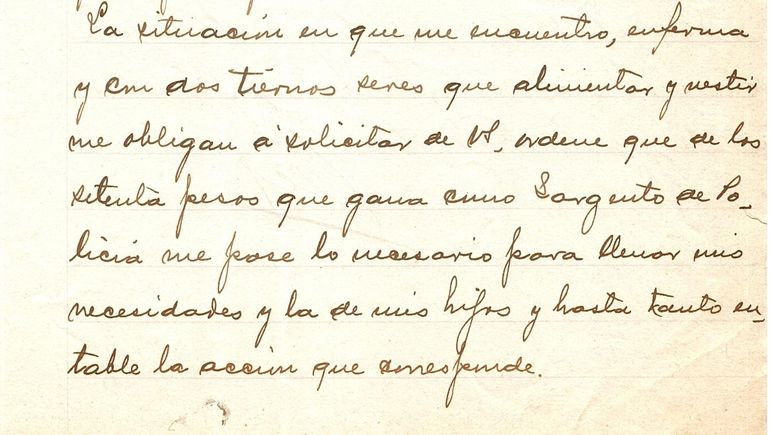 La situación en que me encuentro, enferma
y con dos tiernos seres que alimentar y vestir
me obligan á solicitar de Vd. ordene que de los
setenta pesos que gana como Sargento de Po-
licía me pase lo necesario para llenar mis
necesidades y la de mis hijos y hasta tanto en-
table la acción que corresponde.